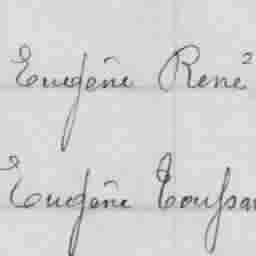 Eugène René 2
Eugène Toussa